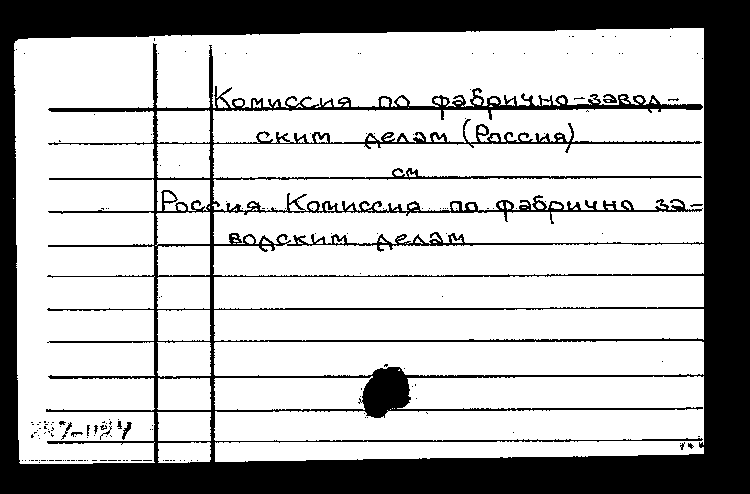 Комиссия по фабрично-завод-
ским делам (Россия)
см
Россия. Комиссия по фабрично за-
водским делам